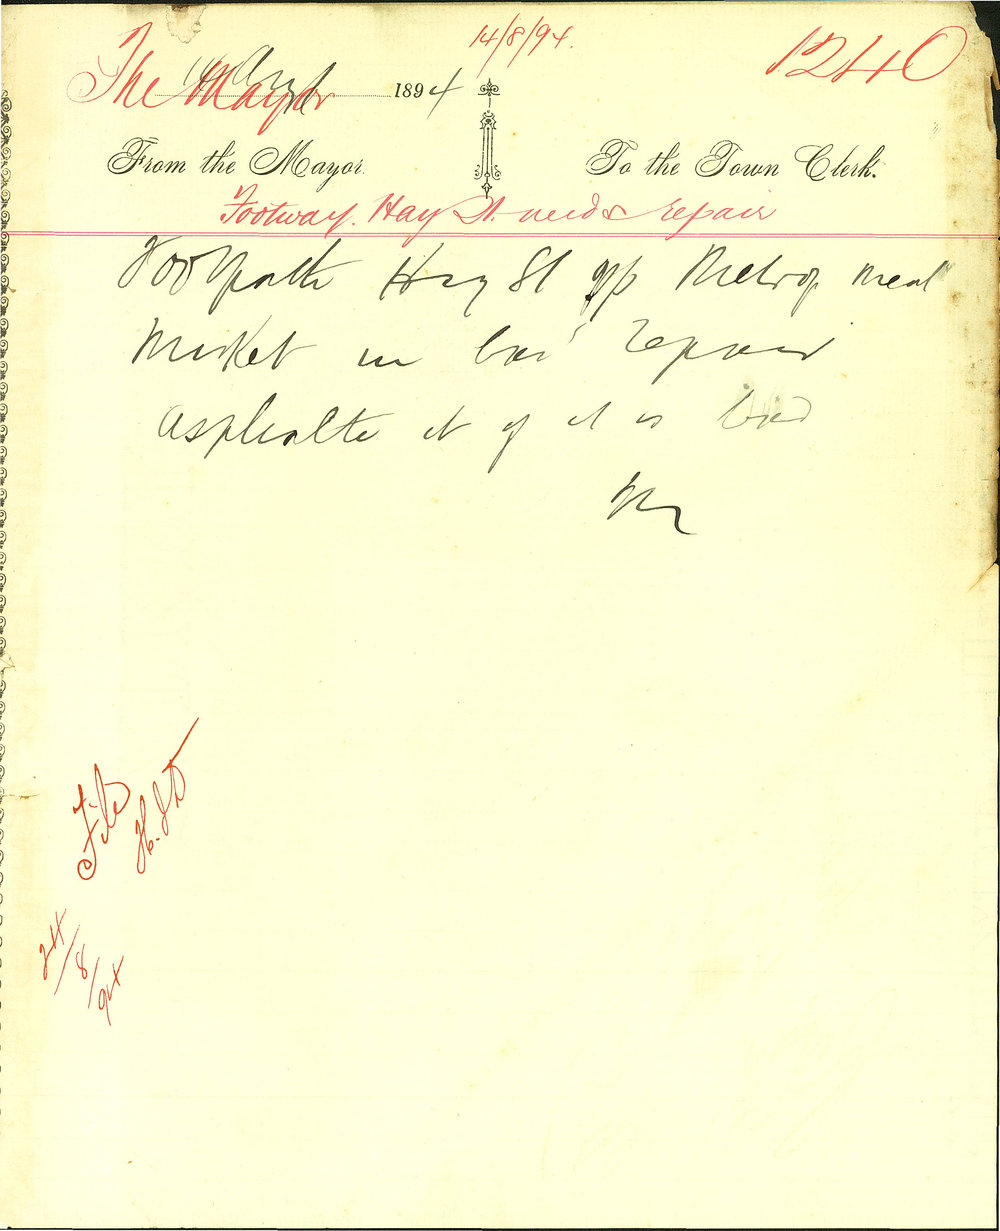 14/8/94.
1240
The Mayor
14 Aug 1894
From the Mayor. To the Town Clerk.
Footway. Hay St. needs repair
Footpath Hay St opp Metrop meat
Market in bad repair
Asphalte it if it is bad
File
24/8/94